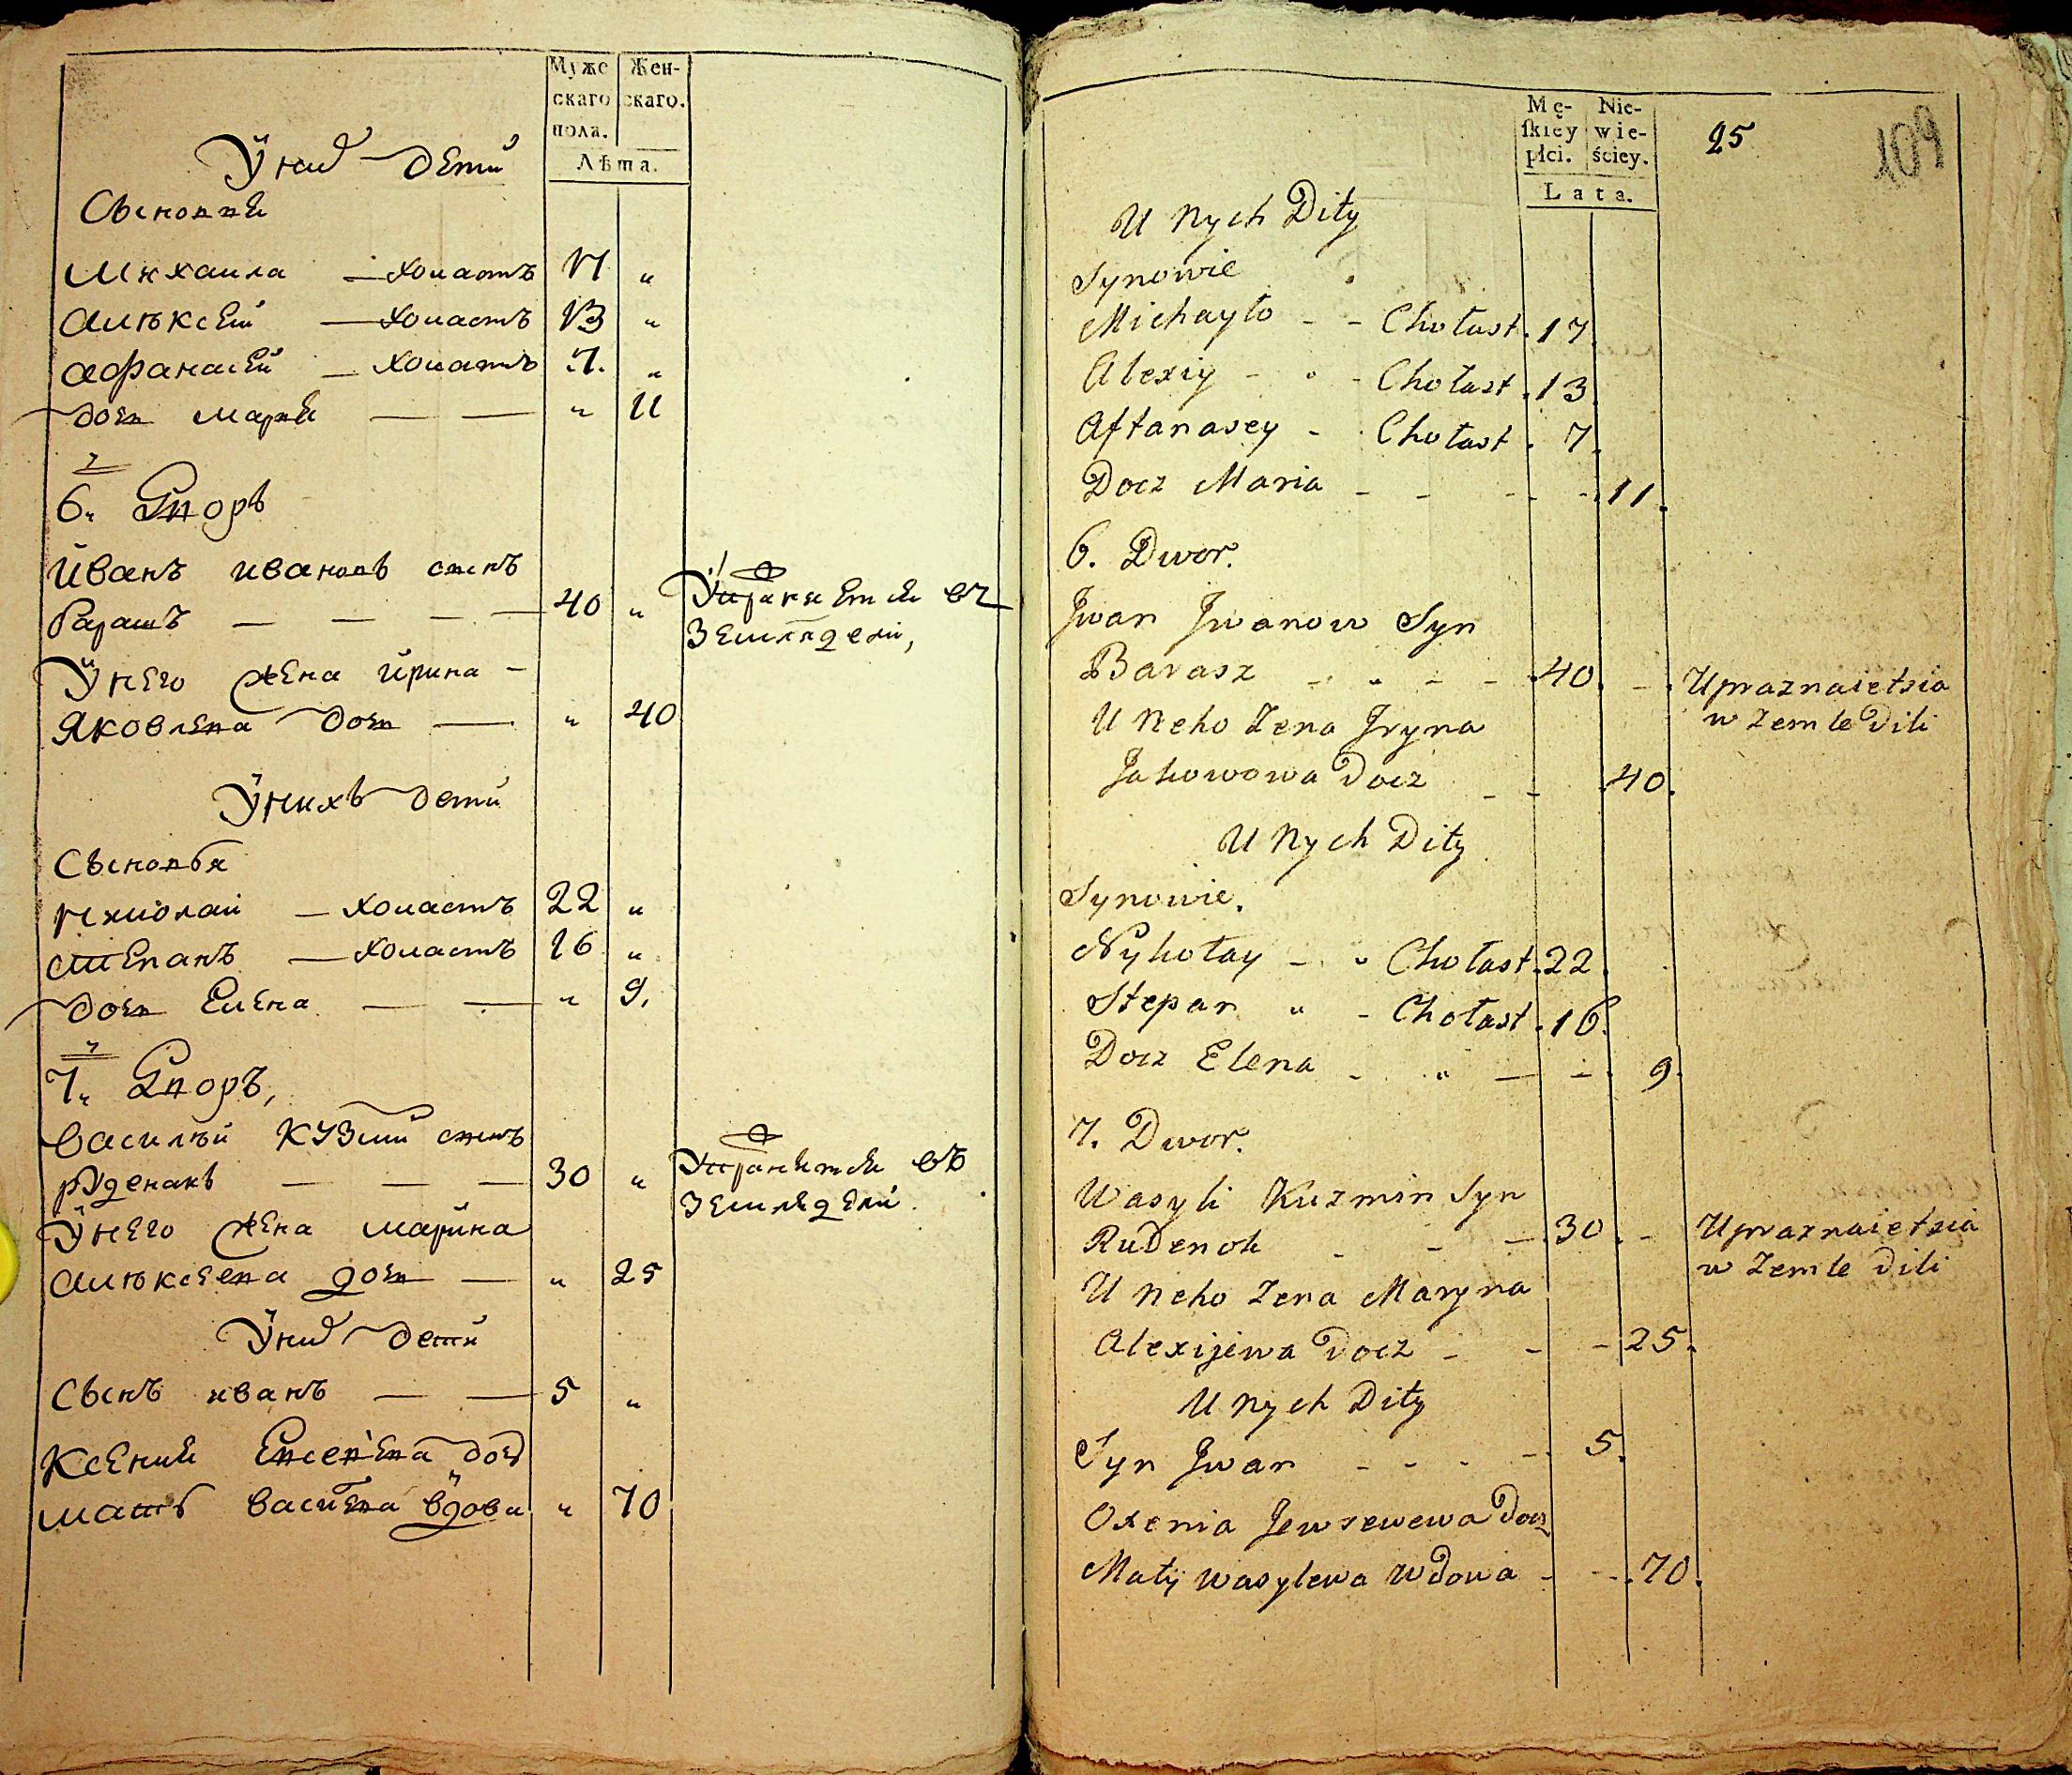 Муже
скаго
пола.
Жен-
скаго.
Лѣта.
У них дети
Сыновья
Михаила — холастъ 17 „
Алѣксей — холастъ 13 „
Афанасей — холастъ 7. „
дочь Марья — — „ 11
6. Дворъ
Иванъ Ивановъ сынъ
Барашъ — — — — 40 „ Упражняется въ
земледелїи,
У него жена Ирина —
Яковлева дочь — „ 40
У нихъ дети
Сыновья
Николай — холастъ 22 „
Степанъ — холастъ 16 „
дочь Елена — — „ 9.
7. Дворъ,
Василѣй Кузмин сынъ
Руденакъ — — — 30 „ Упражняется въ
земледелїи.
У него жена Марина
Алѣксеева дочь — „ 25
У них дети
Сынъ Иванъ — — 5 „
Ксения Евсеева доч
мать Василева вдова „ 70
Mę-
skiey
płci.
Nie-
wie-
ściey.
Lata.
25
109
U Nych Dity
Synowie
Michayło - - Chołast. 17
Alexiy - - Chołast. 13
Aftanasey - Chołast. 7
Docz Maria - - - - 11.
6. Dwor.
Jwan Jwanow Syn
Barasz - - - - 40. - Upraznaietsia
w Zemle Dili
U Neho Zena Jryna
Jakowowa Docz - - 40.
U Nych Dity
Synowie.
Nykołay - - Chołast. 22.
Stepan „ - Chołast. 16.
Docz Elena - „ — - 9.
7. Dwor.
Wasyli Kuzmin Syn
Rudenok - - — 30. - Upraznaietsia
w Zemle Dili
U Neho Zena Maryna
Alexijewa Docz - - - 25.
U Nych Dity
Syn Jwan - - - - 5.
Oxenia Jewsewewa Docz
Maty Wasylewa Wdowa - - 70.